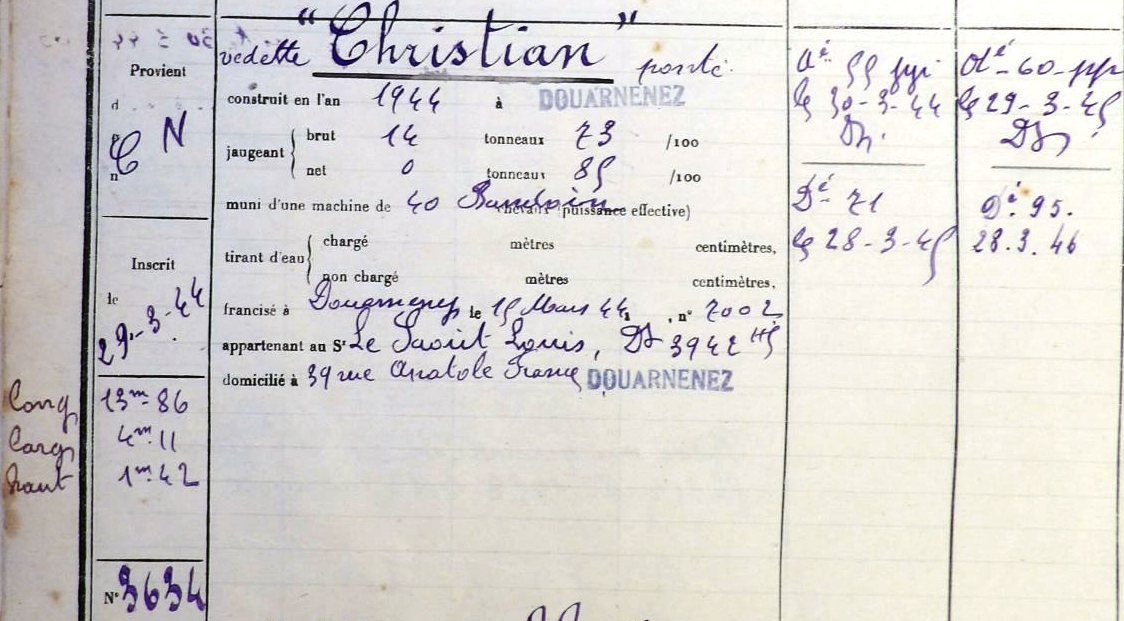 Provient
d
e
n
C N
Inscrit
le
29-3-44
Long 13m-86
Larg 4m.11
haut 1m.42
N° 3634
vedette "Christian" ponté.
construit en l'an 1944 à DOUARNENEZ
jaugeant { brut 14 tonneaux 73 /100
net 0 tonneaux 85 /100
muni d'une machine de 40 Baudoin chevaux (puissance effective)
tirant d'eau { chargé mètres centimètres,
non chargé mètres centimètres,
francisé à Douarnenez le 15 Mars 44, n° 7002
appartenant au Sr Le Saout Louis, Dz 3942 HS
domicilié à 39 rue Anatole France DOUARNENEZ
Aé 55
le 30-3-44
Dz.
Dé 71
le 28-3-45
Aé-60-
le 29-3-45
Dz
Dé.95.
28.3.46